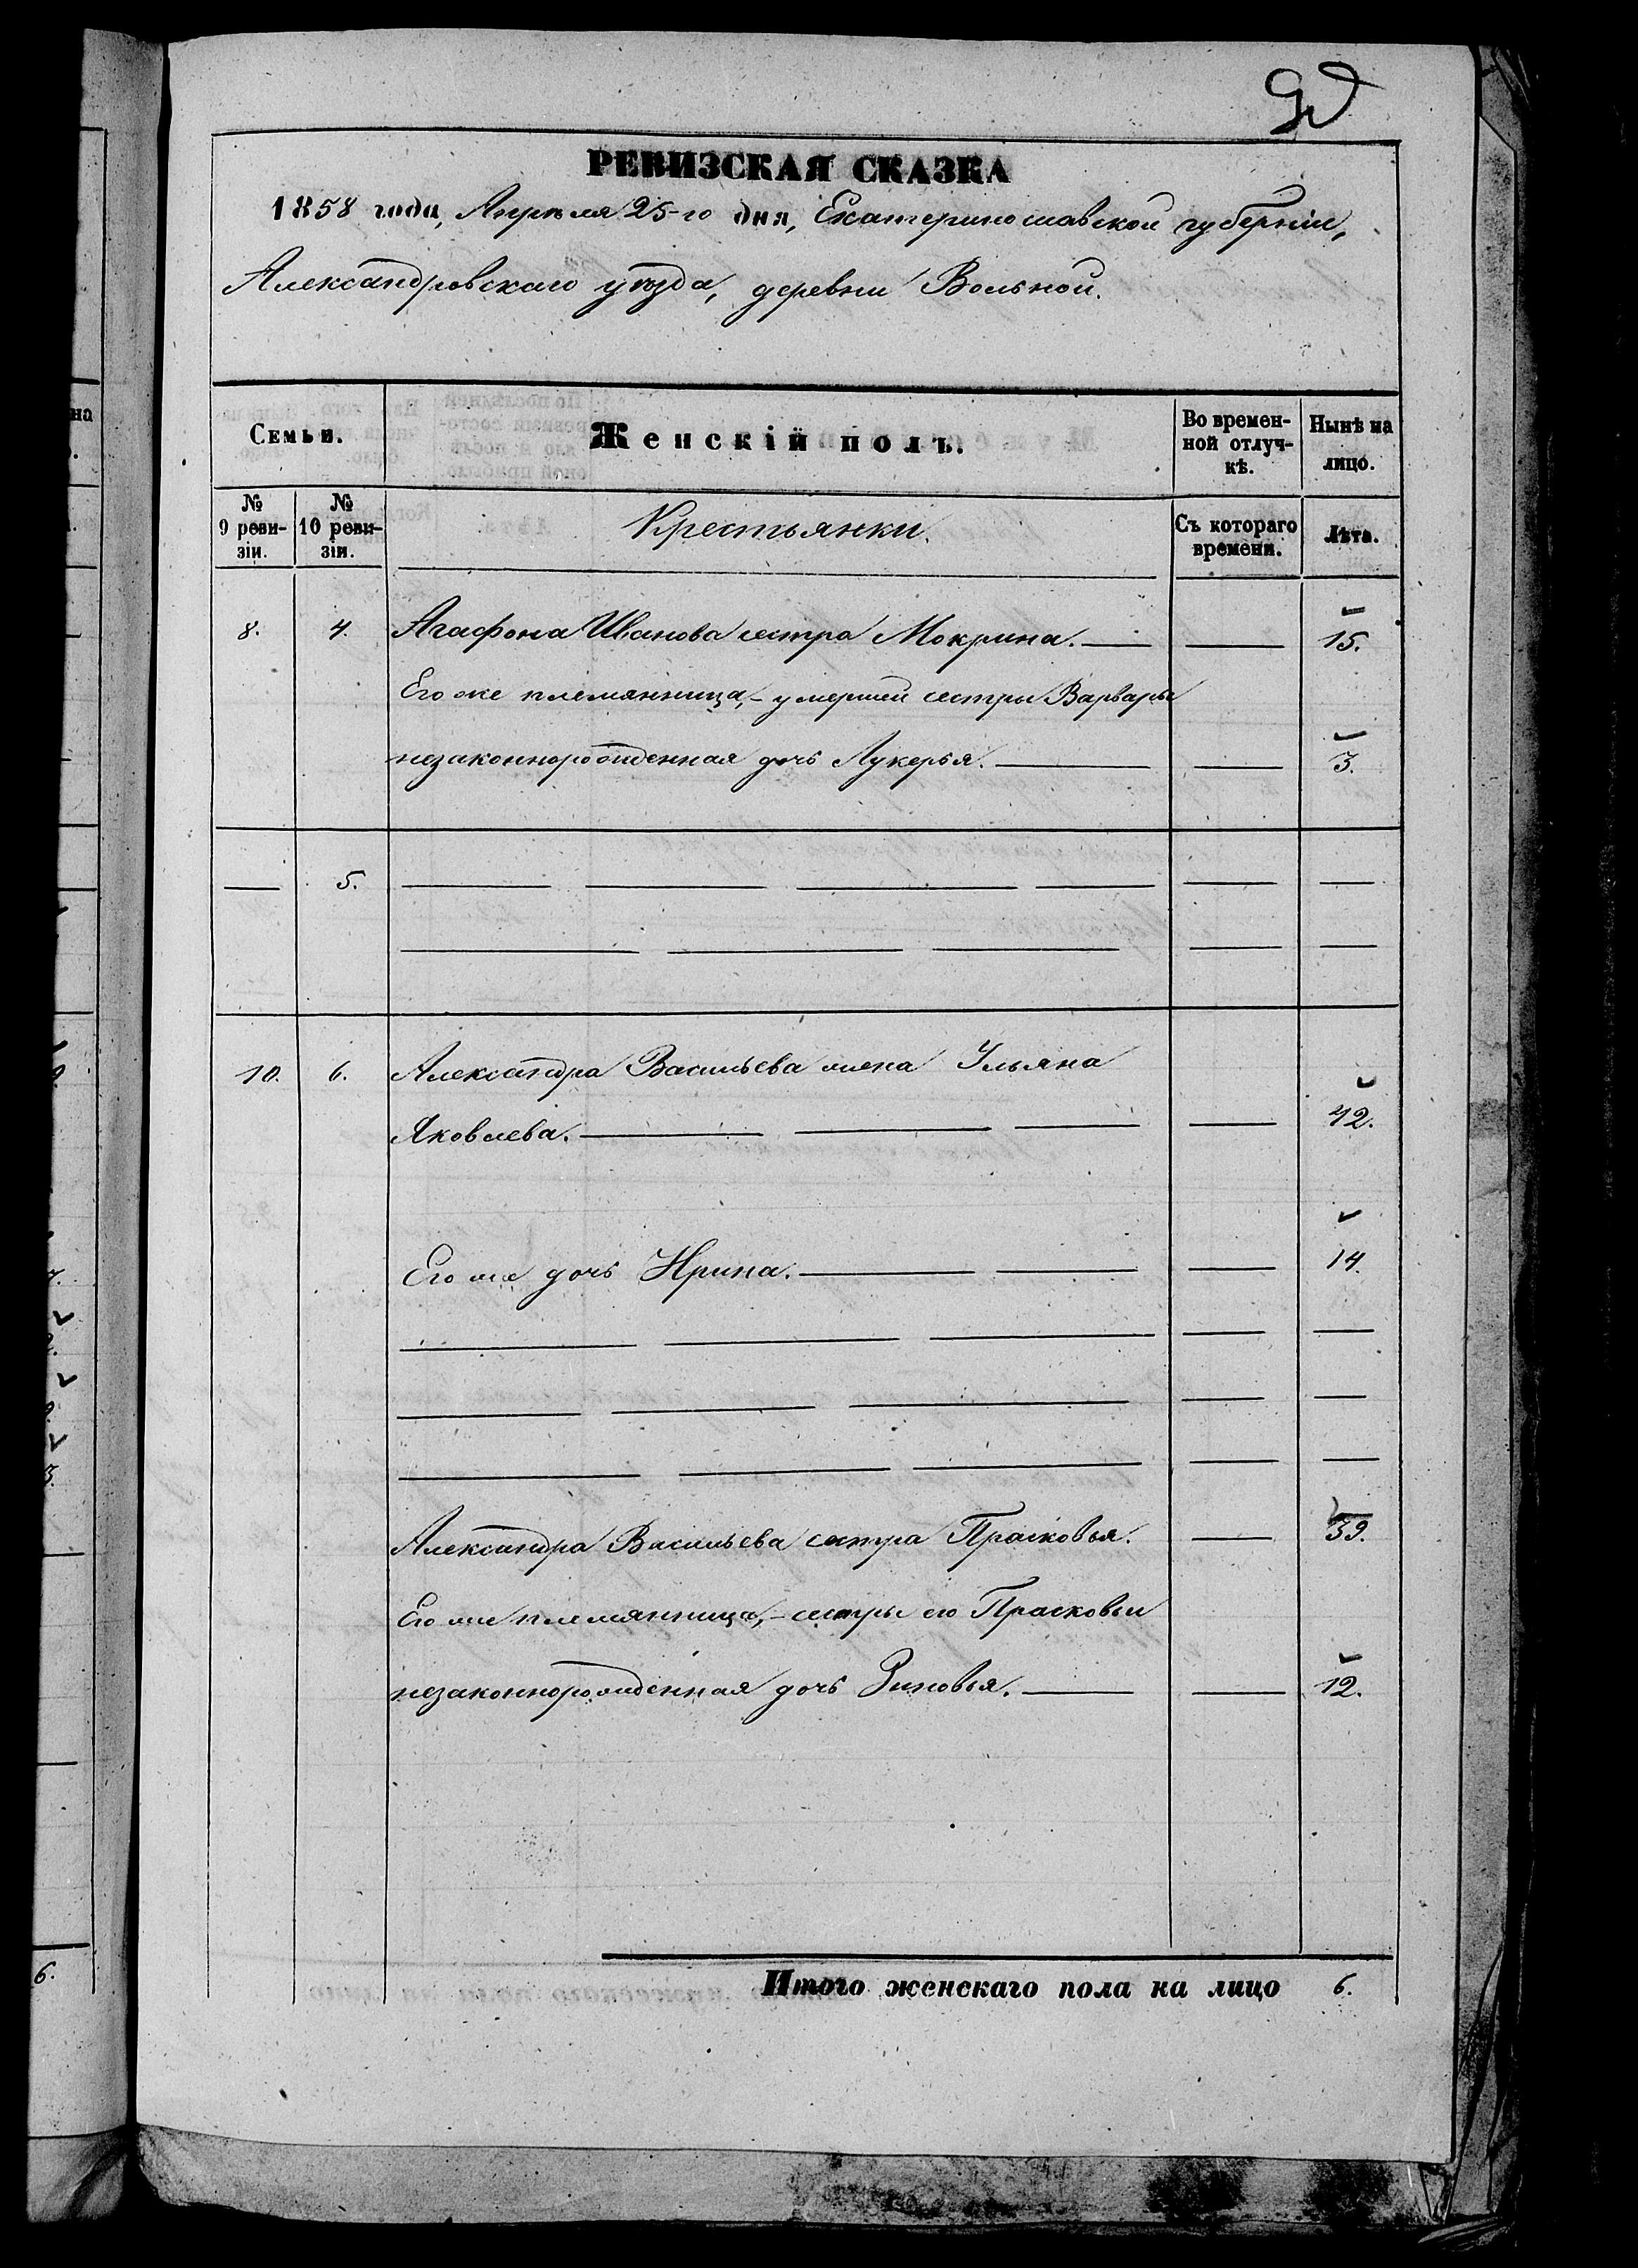 РЕВИЗСКАЯ СКАЗКА
1858 года, Апрѣля 25-го дня, Екатеринославской губерніи,
Александровскаго уѣзда, деревни Вольной.
на
Семьи.
Женскій полъ.
Во времен-
ной отлуч-
кѣ.
Нынѣ на
лицо.
№
9 реви-
зіи.
№
10 реви-
зіи.
Крестьянки.
Съ котораго
времени.
Лѣта.
8. 4. Агафона Иванова сестра Мокрина. 15.
Его же племянница,- умершей сестры Варвары
незаконнорожденная дочь Лукерья. 3.
5.
10. 6. Александра Васильева жена Ульяна
Яковлева. 42.
Его же дочь Ирина. 14.
Александра Васильева сестра Прасковья. 39.
Его же племянница,- сестры его Прасковьи
незаконнорожденная дочь Зиновья. 12.
6.
Итого женскаго пола на лицо 6.